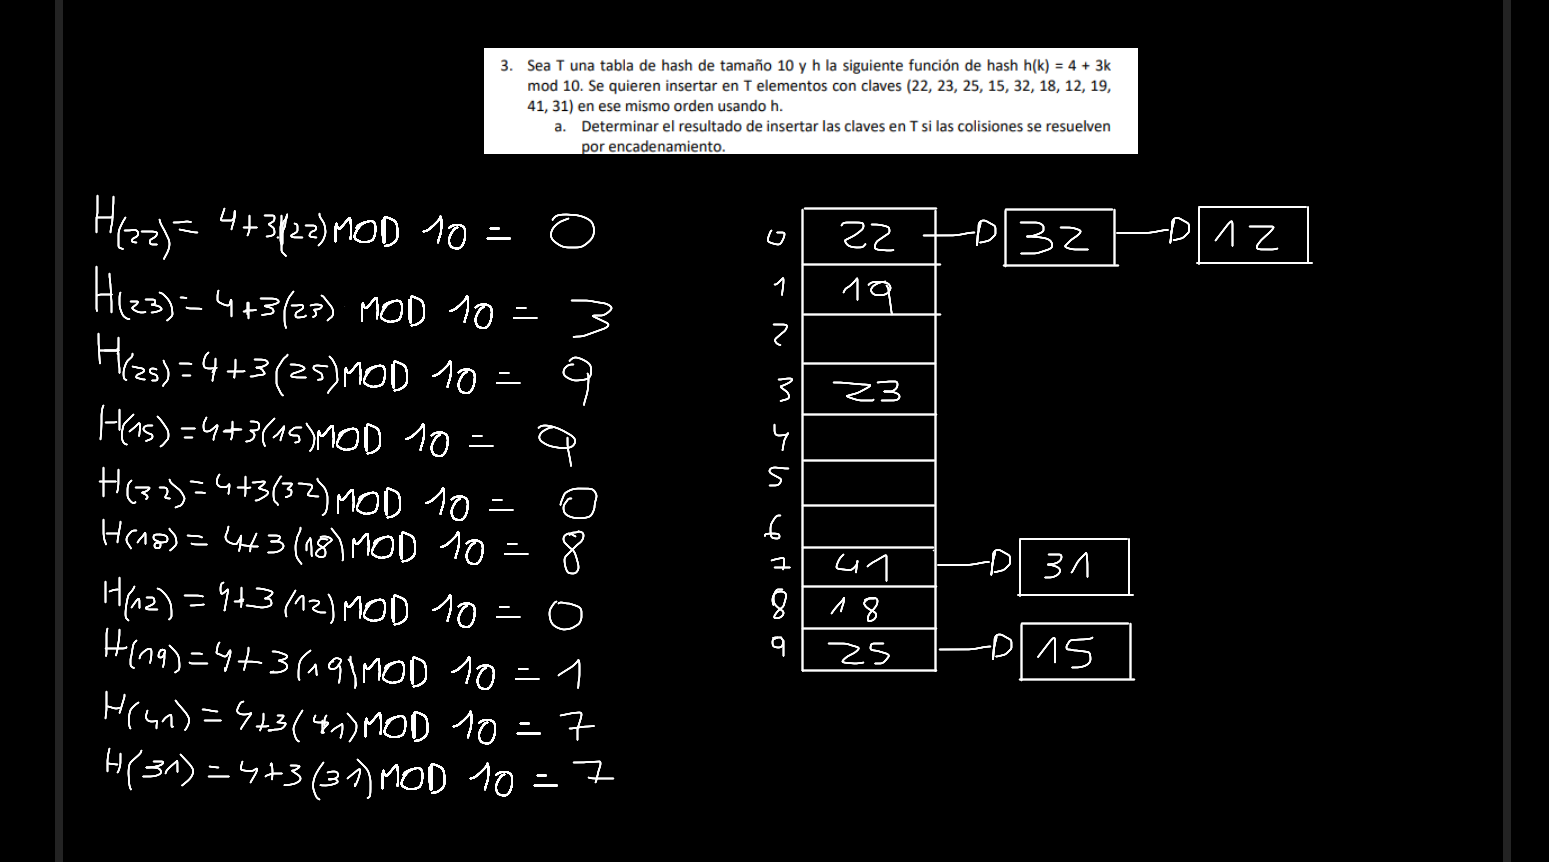 3. Sea T una tabla de hash de tamaño 10 y h la siguiente función de hash h(k) = 4 + 3k
mod 10. Se quieren insertar en T elementos con claves (22, 23, 25, 15, 32, 18, 12, 19,
41, 31) en ese mismo orden usando h.
a. Determinar el resultado de insertar las claves en T si las colisiones se resuelven
por encadenamiento.
H(22) = 4+3(22) MOD 10 = 0
H(23) = 4+3(23) MOD 10 = 3
H(25) = 4+3(25) MOD 10 = 9
H(15) = 4+3(15) MOD 10 = 9
H(32) = 4+3(32) MOD 10 = 0
H(18) = 4+3(18) MOD 10 = 8
H(12) = 4+3(12) MOD 10 = 0
H(19) = 4+3(19) MOD 10 = 1
H(41) = 4+3(41) MOD 10 = 7
H(31) = 4+3(31) MOD 10 = 7
0 22 32 12
1 19
2
3 23
4
5
6
7 41 31
8 18
9 25 15